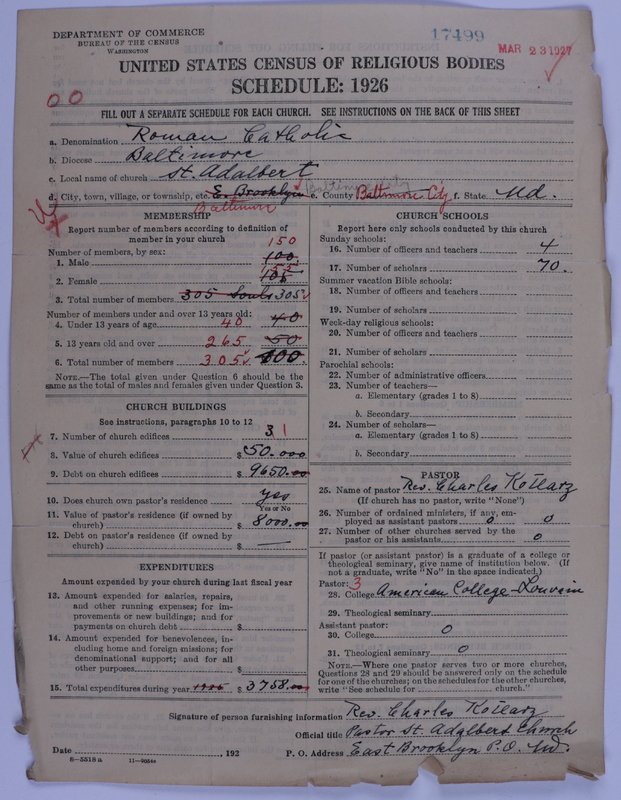 DEPARTMENT OF COMMERCE
BUREAU OF THE CENSUS
WASHINGTON
17499
MAR 23 1927
UNITED STATES CENSUS OF RELIGIOUS BODIES
SCHEDULE: 1926
00
FILL OUT A SEPARATE SCHEDULE FOR EACH CHURCH. SEE INSTRUCTIONS ON THE BACK OF THIS SHEET
a. Denomination Roman Catholic
b. Diocese Baltimore
c. Local name of church St. Adalbert
d. City, town, village, or township, etc. E. Brooklyn Baltimore City e. County Baltimore City f. State Md.
Baltimore
MEMBERSHIP
Report number of members according to definition of
member in your church
Number of members, by sex:
150
1. Male 100
155
2. Female 105
3. Total number of members 305 Souls 305
Number of members under and over 13 years old:
4. Under 13 years of age 40 40
5. 13 years old and over 265 50
6. Total number of members 305 100
NOTE.—The total given under Question 6 should be the
same as the total of males and females given under Question 3.
CHURCH BUILDINGS
See instructions, paragraphs 10 to 12
7. Number of church edifices 3 1
8. Value of church edifices $ 50.000
9. Debt on church edifices $ 9650.00
10. Does church own pastor's residence yes
Yes or No
11. Value of pastor's residence (if owned by
church) $ 8000.00
12. Debt on pastor's residence (if owned by
church) $ —
EXPENDITURES
Amount expended by your church during last fiscal year
13. Amount expended for salaries, repairs,
and other running expenses; for im-
provements or new buildings; and for
payments on church debt $
14. Amount expended for benevolences, in-
cluding home and foreign missions; for
denominational support; and for all
other purposes $
15. Total expenditures during year 1926 $ 3758.00
CHURCH SCHOOLS
Report here only schools conducted by this church
Sunday schools:
16. Number of officers and teachers 4
17. Number of scholars 70.
Summer vacation Bible schools:
18. Number of officers and teachers
19. Number of scholars
Week-day religious schools:
20. Number of officers and teachers
21. Number of scholars
Parochial schools:
22. Number of administrative officers
23. Number of teachers—
a. Elementary (grades 1 to 8)
b. Secondary
24. Number of scholars—
a. Elementary (grades 1 to 8)
b. Secondary
PASTOR
25. Name of pastor Rev. Charles Kotlarz
(If church has no pastor, write "None")
26. Number of ordained ministers, if any, em-
ployed as assistant pastors 0 0
27. Number of other churches served by the
pastor or his assistants 0
If pastor (or assistant pastor) is a graduate of a college or
theological seminary, give name of institution below. (If
not a graduate, write "No" in the space indicated.)
Pastor: 3
28. College American College-Louvain
29. Theological seminary
Assistant pastor:
30. College 0
31. Theological seminary 0
NOTE.—Where one pastor serves two or more churches,
Questions 28 and 29 should be answered only on the schedule
for one of the churches; on the schedules for the other churches,
write "See schedule for church."
Signature of person furnishing information Rev. Charles Kotlarz
Official title Pastor St. Adalbert Church
Date , 192 P. O. Address East Brooklyn P.O. Md.
8-5318a 11-8084a